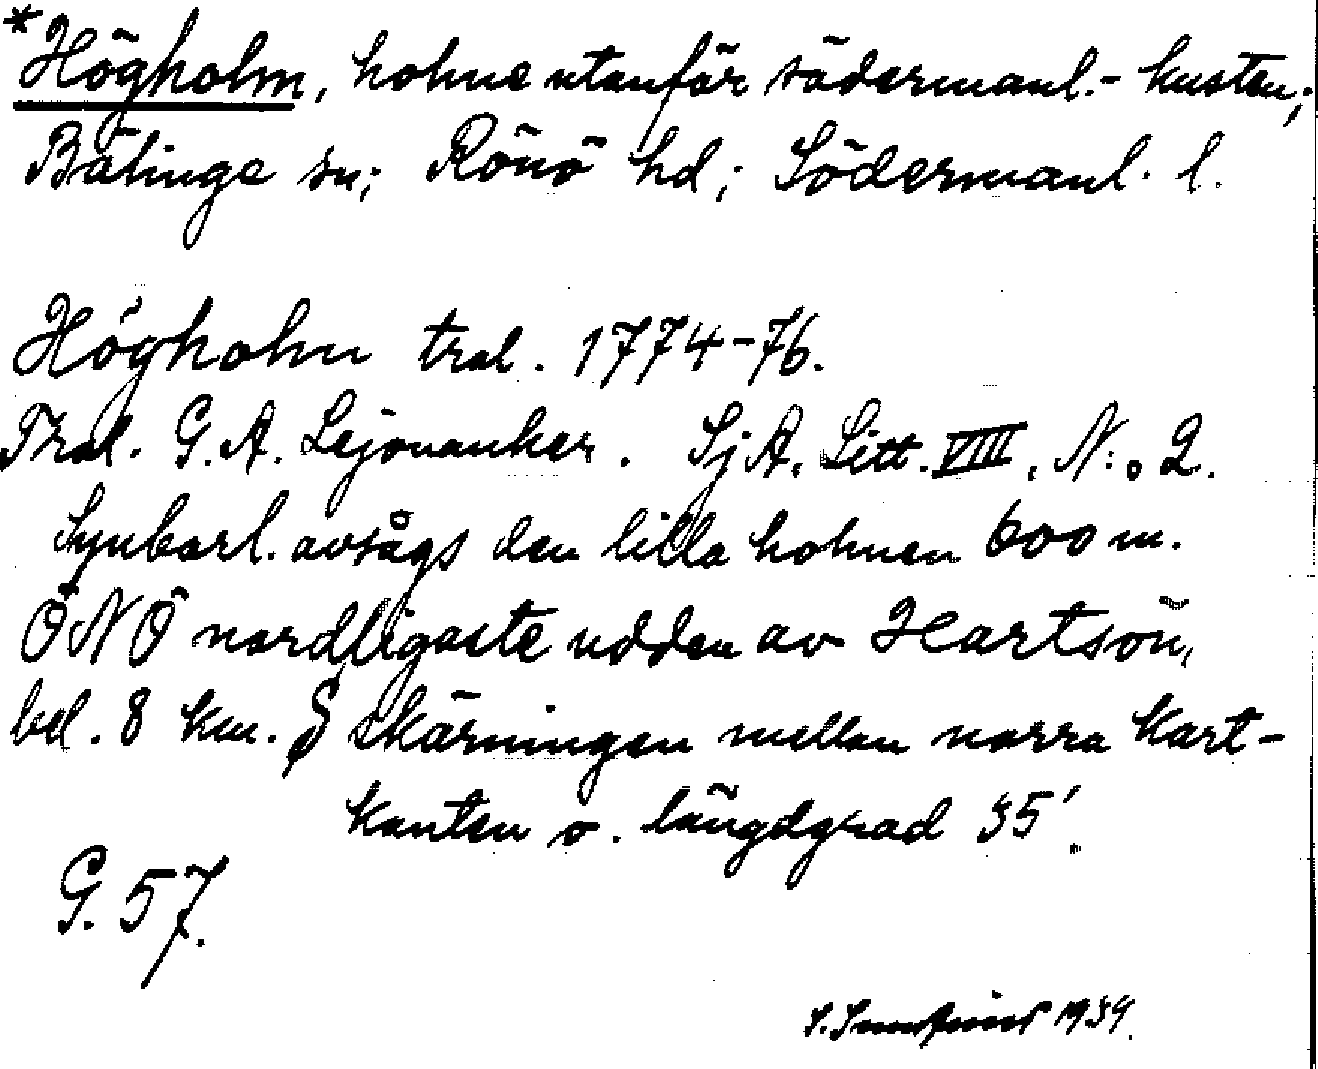 *Högholm, holme utanför södermanl.- kusten;
Bälinge sn; Rönö hd; Södermanl. l.
Högholm tral. 1774-76.
Tral. G. A. Lejonanker. SjA. Litt. VIII, N:o 2.
Synbarl. avsågs den lilla holmen 600 m.
ÖNÖ nordligaste udden av Hartsön,
bel. 8 km. S skärningen mellan norra kart-
kanten o. längdgrad 35'.
G. 57.
1939.